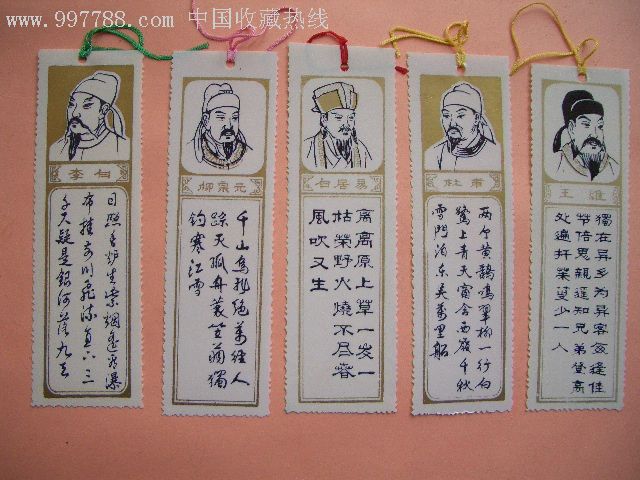 www.997788.com 中国收藏热线
李白
日照香炉生紫烟遥看瀑
布挂前川飞流直下三
千尺疑是銀河落九天
柳宗元
千山鸟飛绝萬径人
踪灭孤舟蓑笠翁獨
钓寒江雪
白居易
离离原上草一岁一
枯榮野火燒不尽春
風吹又生
杜甫
两个黄鹂鳴翠柳一行白
鷺上青天窗含西嶺千秋
雪門泊东吴萬里船
王維
獨在异乡为异客每逢佳
节倍思親遥知兄弟登高
处遍插茱萸少一人